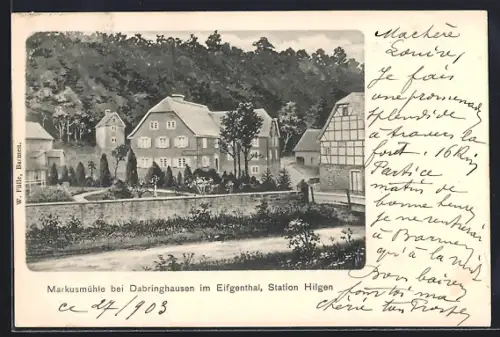 W. Fülle, Barmen.
Markusmühle bei Dabringhausen im Eifgenthal, Station Hilgen
ce 27/9 03
Ma chère
Louise,
Je fais
une promenade
splendide
à travers la
forêt. 16 km
Partie
matin de
bonne heure
je ne rentrerai
à Barmen
qu'à la nuit
Bon baiser
pour toi ma
chérie ton